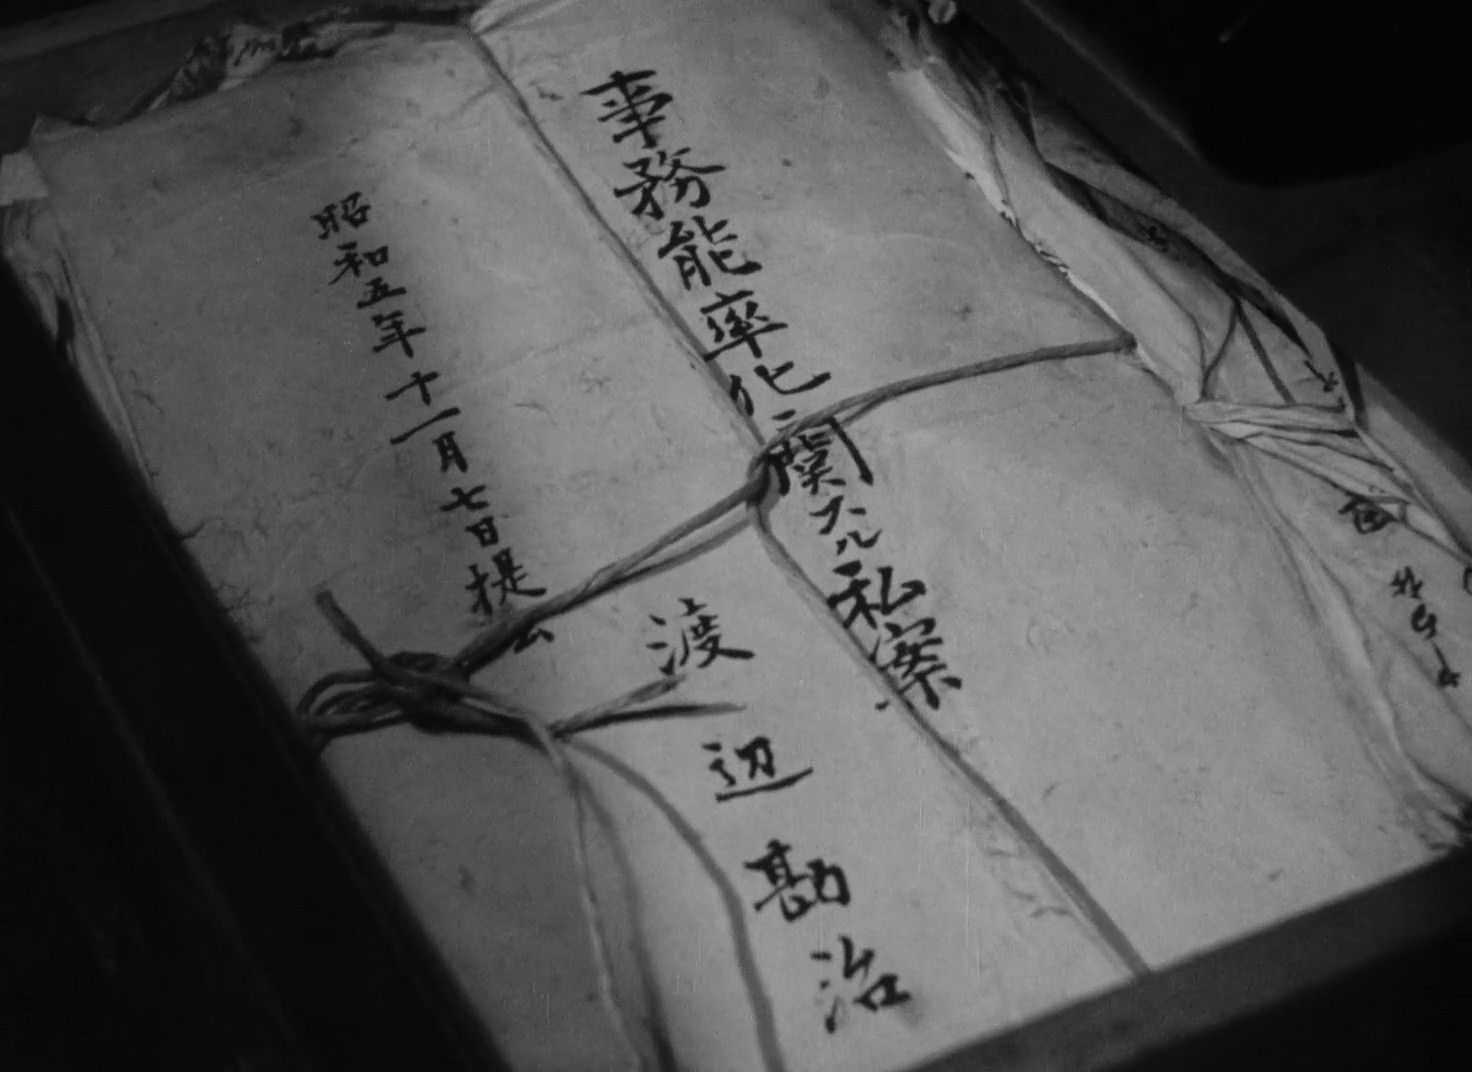 事務能率化ニ関スル私案
渡辺勘治
昭和五年十一月七日提